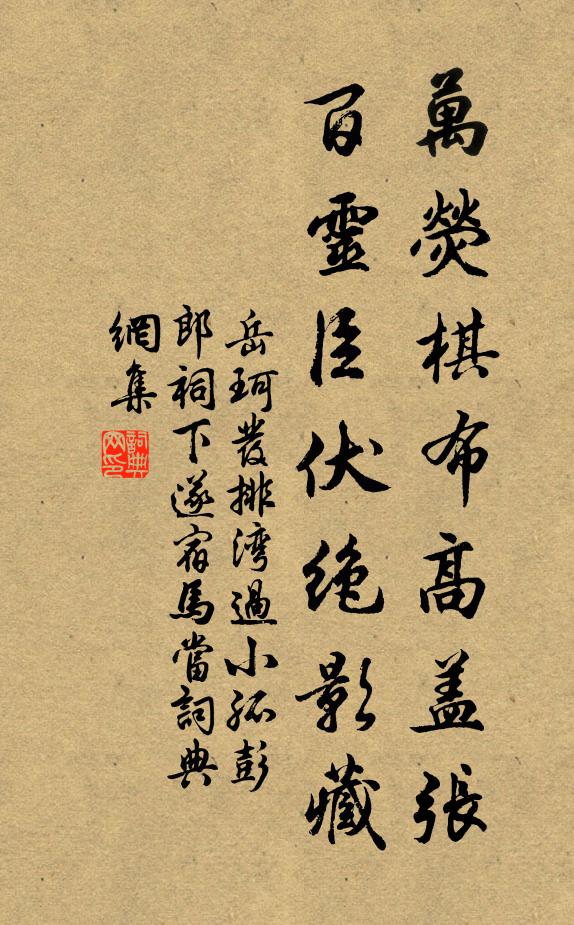 萬熒棋布高盖張
百靈臣伏绝影藏
岳珂發排湾過小孤彭
郎祠下遂宿馬當詞典
網集
詞典网印